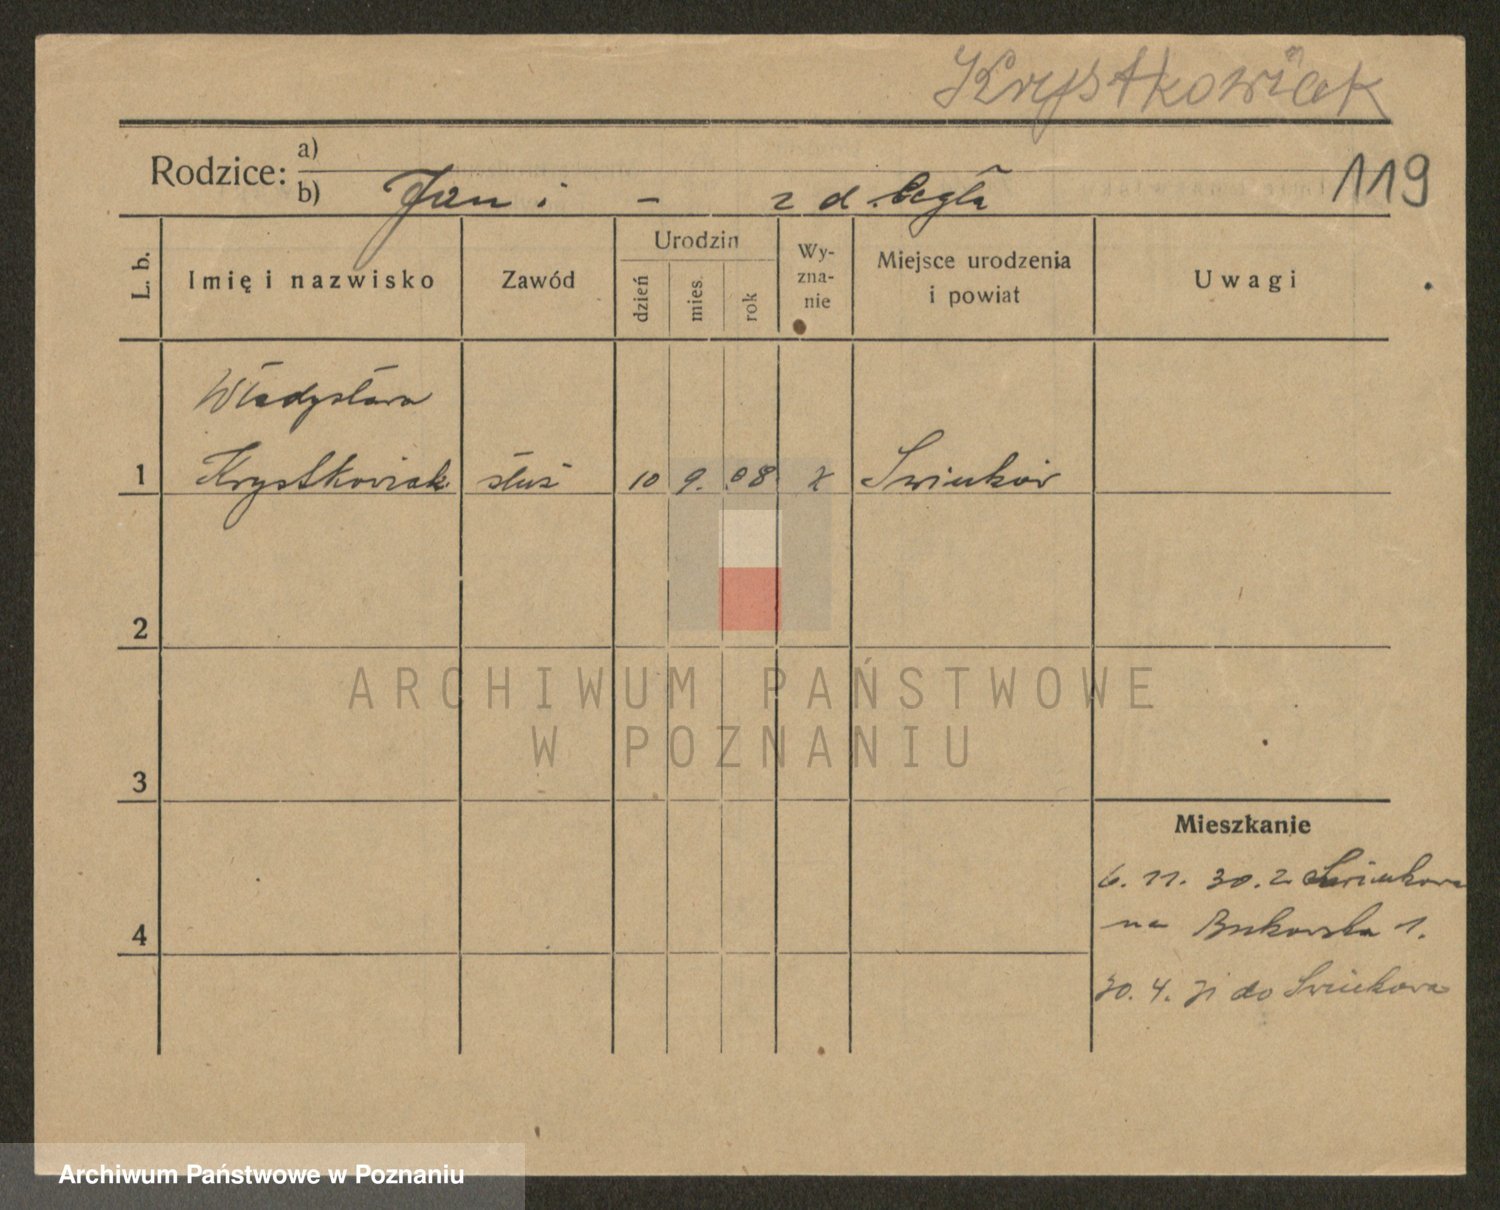 Krystkowiak
119
Rodzice: a)
b) Jan i — z d. Cegła
L. b.
Imię i nazwisko
Zawód
Urodzin
dzień
mies.
rok
Wy-
zna-
nie
Miejsce urodzenia
i powiat
Uwagi
Władysława
1 Krystkowiak służ 10 9. 08 Swinków
2
3
4
Mieszkanie
6. 11. 30. z
na Bukowska 1.
30. 4. 31 do
ARCHIWUM PAŃSTWOWE
W POZNANIU
Archiwum Państwowe w Poznaniu